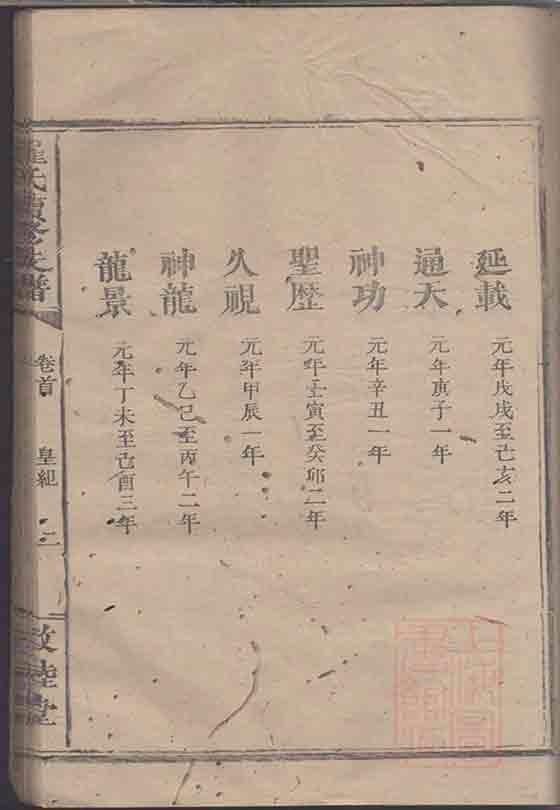 延載 元年戊戌至己亥二年
通天 元年庚子一年
神功 元年辛丑一年
聖歴 元年壬寅至癸卯二年
久視 元年甲辰一年
神龍 元年乙己至丙午二年
龍景 元年丁未至己酉三年
羅氏續修族譜
卷首 皇紀 二
敦睦堂